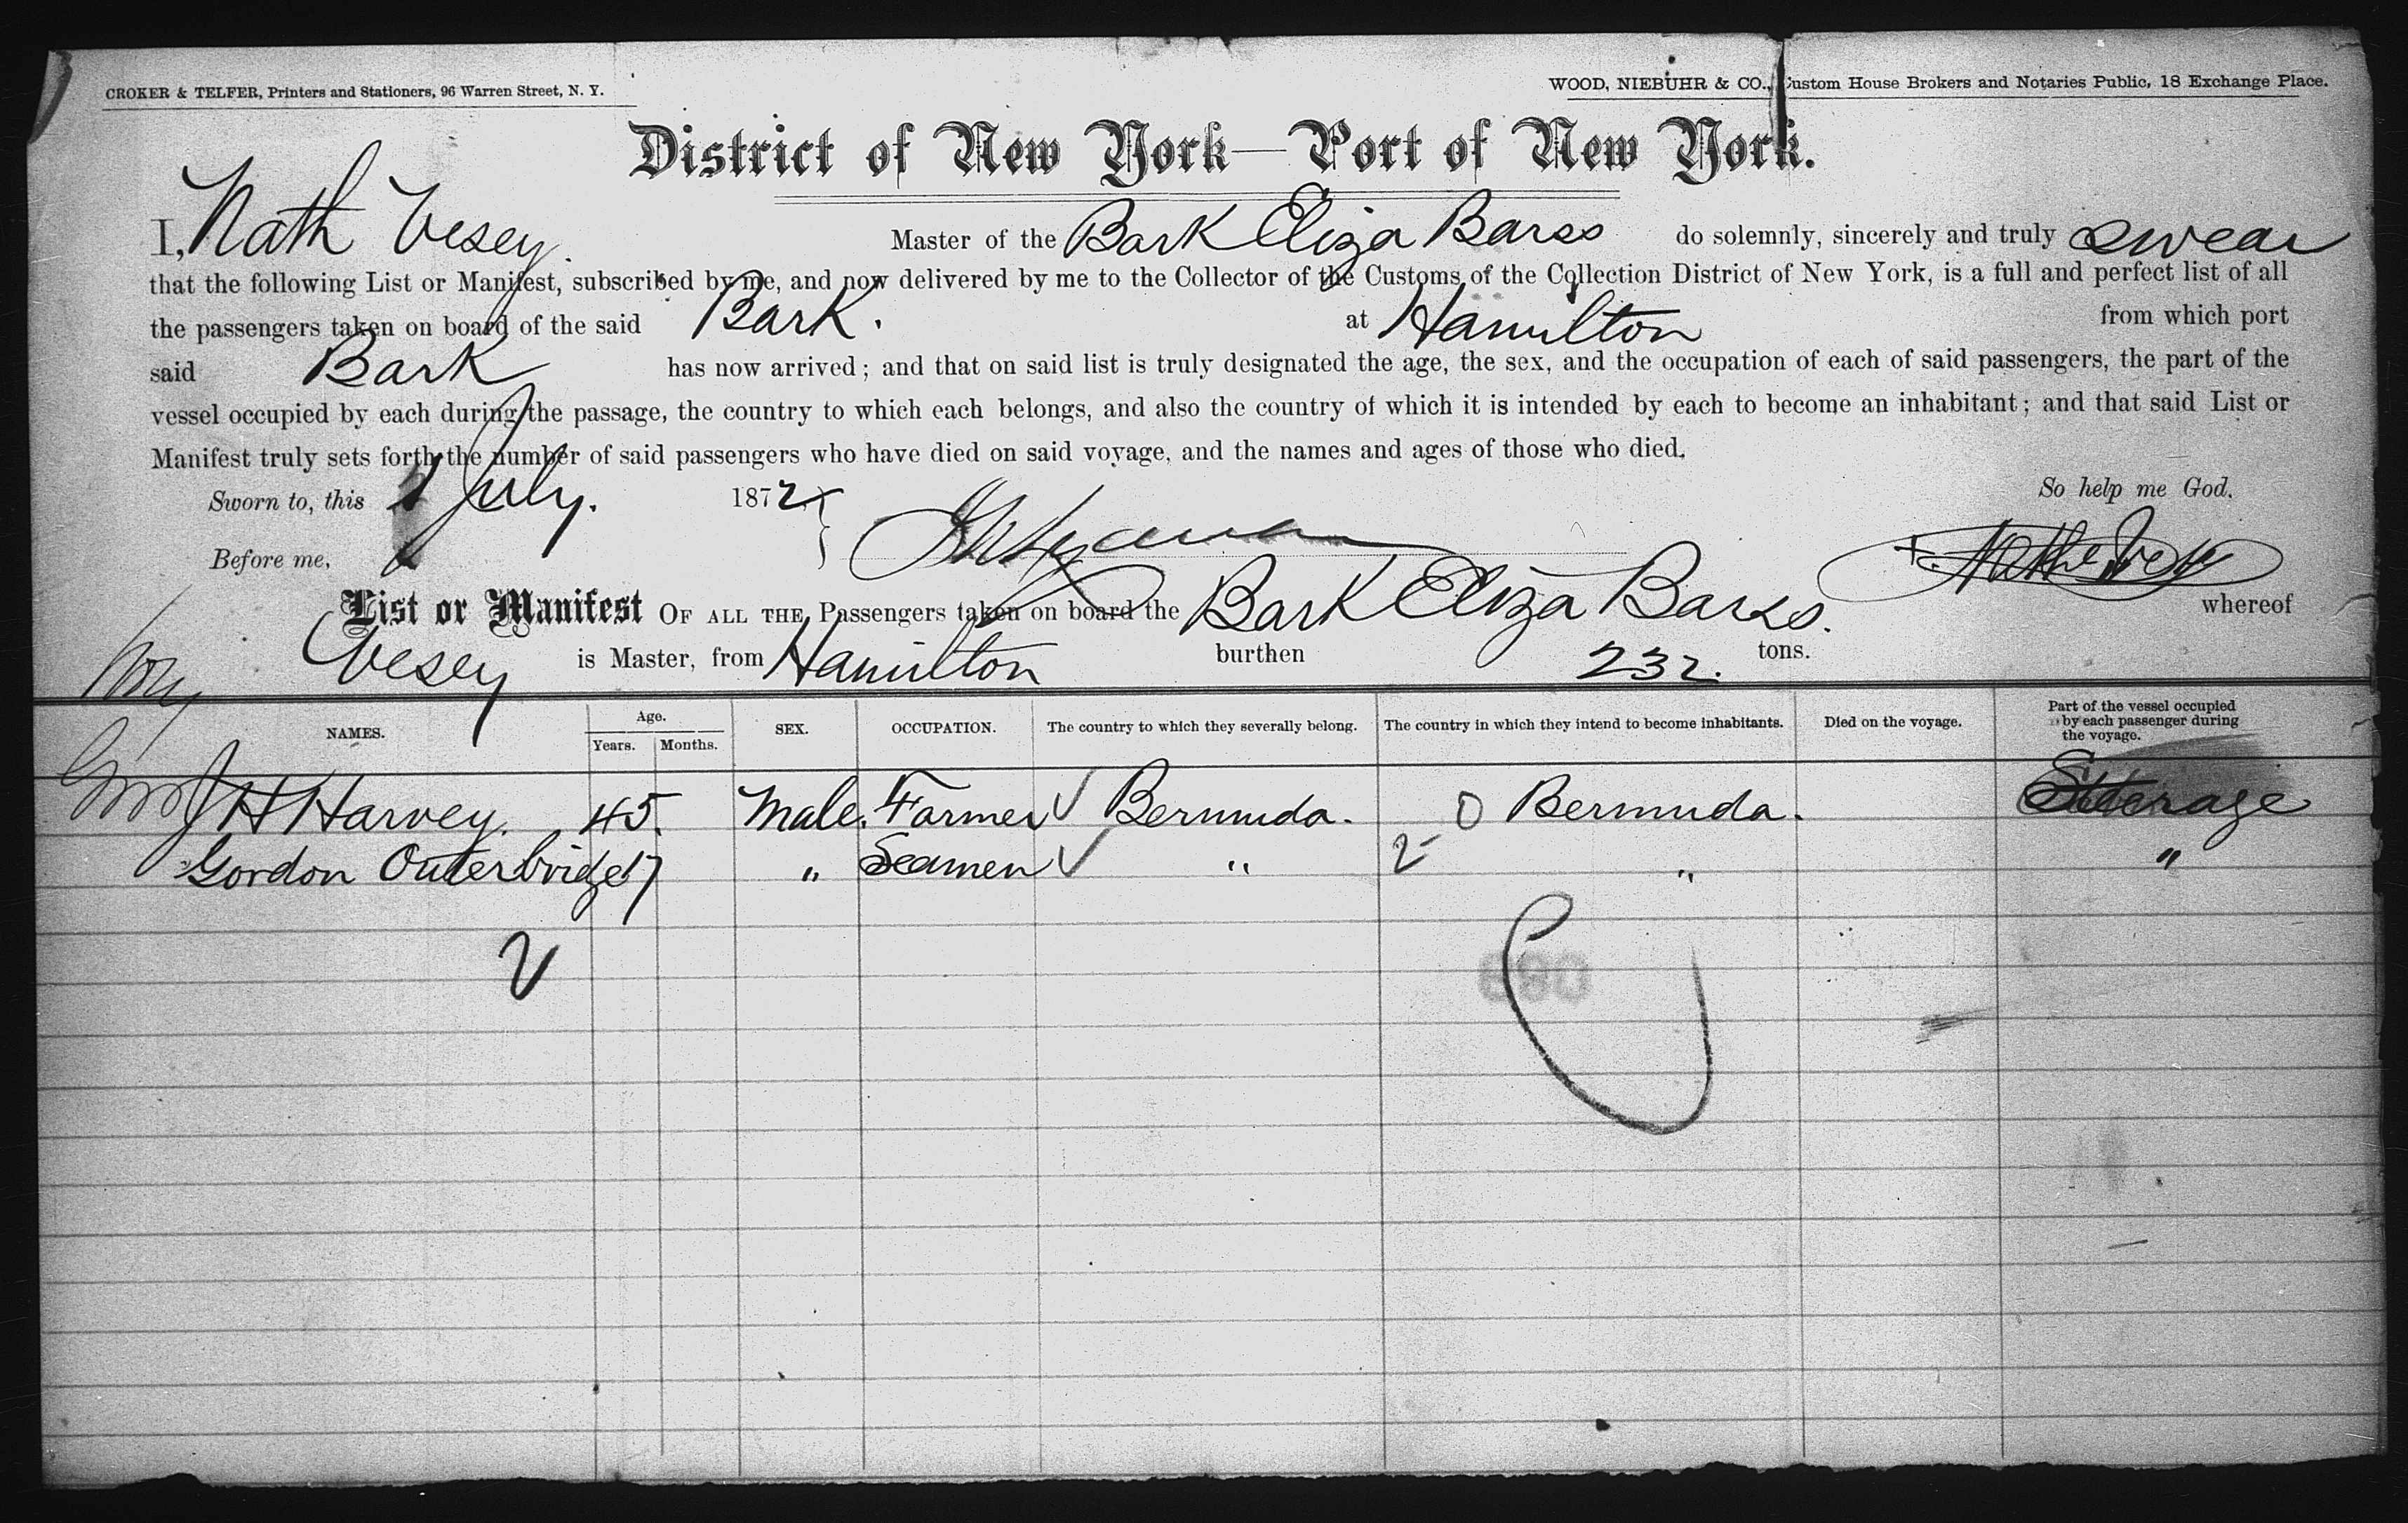 CROKER & TELFER, Printers and Stationers, 96 Warren Street, N. Y.
WOOD, NIEBUHR & CO., Custom House Brokers and Notaries Public, 18 Exchange Place.
District of New York—Port of New York.
I, Nath Vesey. Master of the Bark Eliza Barss do solemnly, sincerely and truly swear
that the following List or Manifest, subscribed by me, and now delivered by me to the Collector of the Customs of the Collection District of New York, is a full and perfect list of all
the passengers taken on board of the said Bark. at Hamilton from which port
said Bark has now arrived; and that on said list is truly designated the age, the sex, and the occupation of each of said passengers, the part of the
vessel occupied by each during the passage, the country to which each belongs, and also the country of which it is intended by each to become an inhabitant; and that said List or
Manifest truly sets forth the number of said passengers who have died on said voyage, and the names and ages of those who died.
Sworn to, this 1 July. 1872 So help me God.
Before me,
List or Manifest OF ALL THE Passengers taken on board the Bark Eliza Barss. whereof
Vesey is Master, from Hamilton burthen 232. tons.
NAMES. Age. Years. Months. SEX. OCCUPATION. The country to which they severally belong. The country in which they intend to become inhabitants. Died on the voyage. Part of the vessel occupied by each passenger during the voyage.
J H Harvey. 45. Male. Farmer Bermuda. 0 Bermuda. Steerage
Gordon Outerbridge 17 " Seamen " 2 " "
2